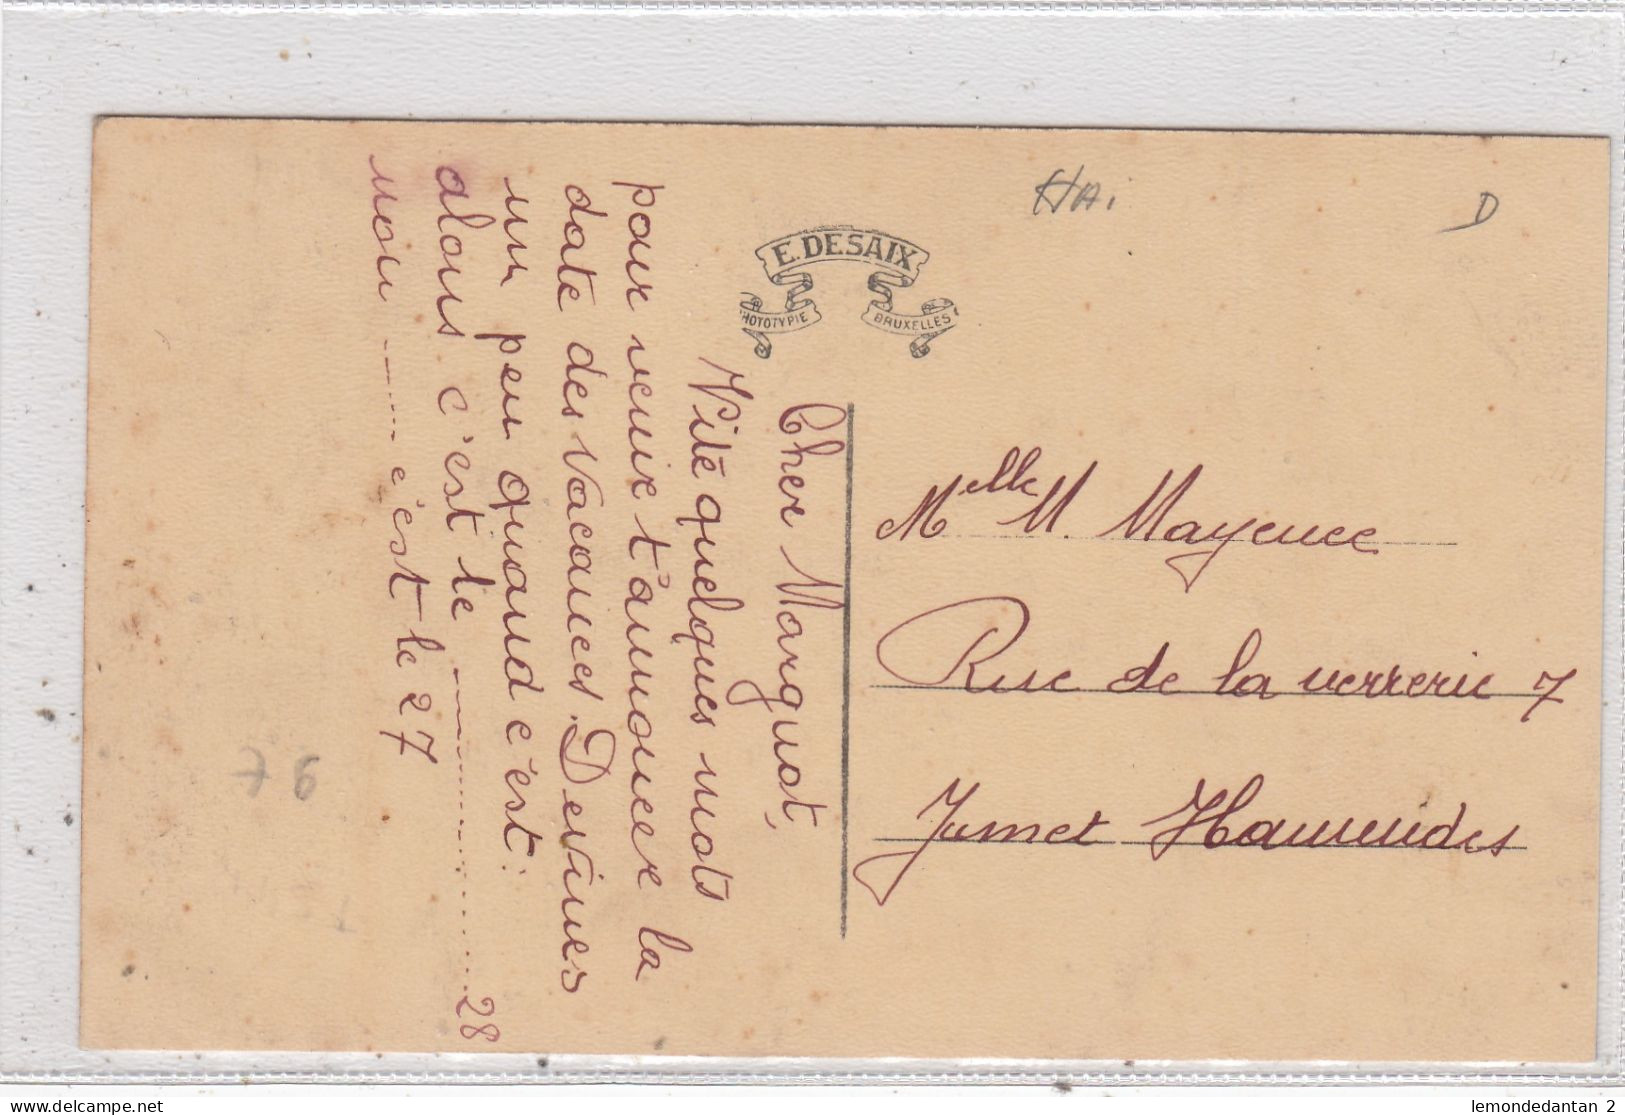 HAi
D
E. DESAIX
HOTOTYPIE
BRUXELLES
Cher Marguot,
Vite quelques mots
pour venir t'annoncer la
date des Vacances. Devines
un peu quand c'est:
alors c'est le ............ 28
non ------ c'est le 27
76
Melle M. Mayence
Rue de la verrerie 7
Jumet Hamendes
delcampe.net
lemondedantan 2